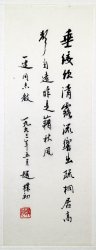 垂緌飲清露流響出疏桐居高
聲自遠非是藉秋風
同志
一九 年五月 趙樸初